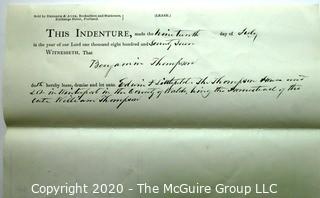 Sold by Dresser & Ayer, Booksellers and Stationers, (LEASE.)
Exchange Street, Portland.
THIS INDENTURE, made the nineteenth day of July
in the year of our Lord one thousand eight hundred and seventy
WITNESSETH, That
Benjamin Thompson
doth hereby lease, demise and let unto Edwin Littlefield. The Thompson Farm
in Winterport in the County of Waldo, being the Homestead of the
late William Thompson
Copyright 2020 - The McGuire Group LLC